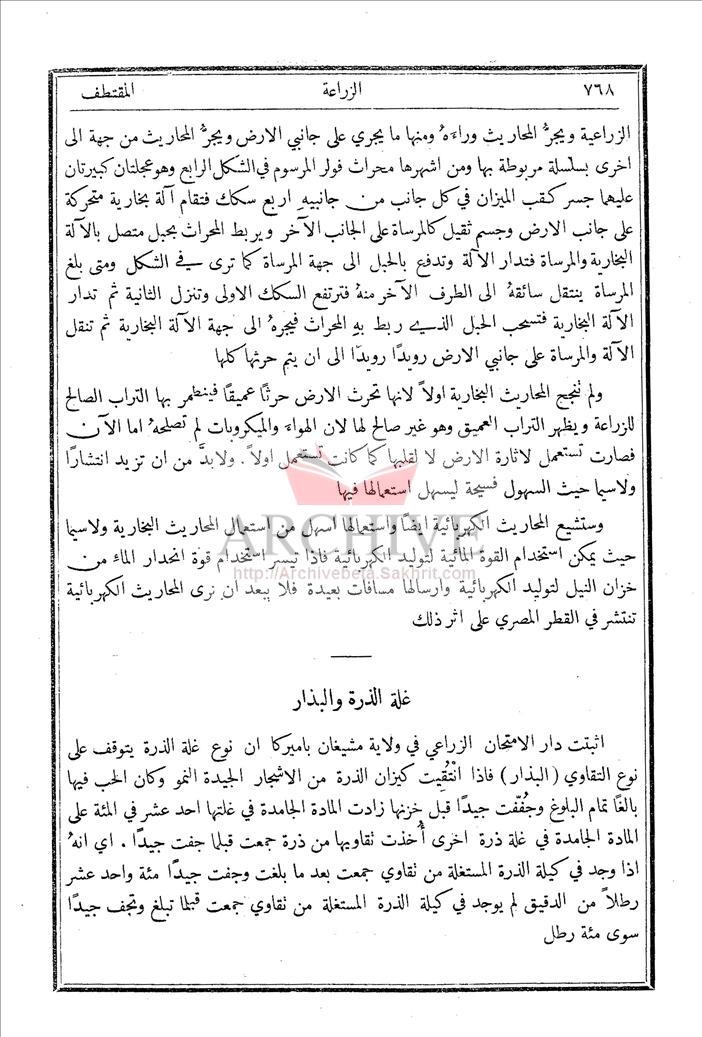 ٧٦٨ الزراعة المقتطف
الزراعية ويجرُّ المحاريث وراءَهُ ومنها ما يجري على جانبي الارض ويجرُّ المحاريث من جهة الى
اخرى بسلسلة مربوطة بها ومن اشهرها محراث فولر المرسوم في الشكل الرابع وهو عجلتان كبيرتان
عليهما جسر كقب الميزان في كل جانب من جانبيهِ اربع سكك فتقام آلة بخارية متحركة
على جانب الارض وجسم ثقيل كالمرساة على الجانب الآخر ويربط المحراث بحبل متصل بالآلة
البخارية والمرساة فتدار الآلة وتدفع بالحبل الى جهة المرساة كما ترى في الشكل ومتى بلغ
المرساة ينتقل سائقهُ الى الطرف الآخر منهُ فترتفع السكك الاولى وتنزل الثانية ثم تدار
الآلة البخارية فتسحب الحبل الذي ربط بهِ المحراث فيجرهُ الى جهة الآلة البخارية ثم تنقل
الآلة والمرساة على جانبي الارض رويدًا رويدًا الى ان يتم حرثها كلها
ولم تنجح المحاريث البخارية اولاً لانها تحرث الارض حرثًا عميقًا فينطمر بها التراب الصالح
للزراعة ويظهر التراب العميق وهو غير صالح لها لان الهواء والميكروبات لم تصلحهُ اما الآن
فصارت تستعمل لاثارة الارض لا لقلبها كما كانت تستعمل اولاً . ولابدَّ من ان تزيد انتشارًا
ولاسيما حيث السهول فسيحة ليسهل استعمالها فيها
وستشيع المحاريث الكهربائية ايضًا واستعمالها اسهل من استعمال المحاريث البخارية ولاسيما
حيث يمكن استخدام القوة المائية لتوليد الكهربائية فاذا تيسر استخدام قوة انحدار الماء من
خزان النيل لتوليد الكهربائية وارسالها مسافات بعيدة فلا يبعد ان نرى المحاريث الكهربائية
تنتشر في القطر المصري على اثر ذلك
غلة الذرة والبذار
اثبتت دار الامتحان الزراعي في ولاية مشيغان باميركا ان نوع غلة الذرة يتوقف على
نوع التقاوي ( البذار ) فاذا انْتُقِيت كيزان الذرة من الاشجار الجيدة النمو وكان الحب فيها
بالغًا تمام البلوغ وجُفّفت جيدًا قبل خزنها زادت المادة الجامدة في غلتها احد عشر في المئة على
المادة الجامدة في غلة ذرة اخرى أُخذت تقاويها من ذرة جمعت قبلما جفت جيدًا . اي انهُ
اذا وجد في كيلة الذرة المستغلة من تقاوي جمعت بعد ما بلغت وجفت جيدًا مئة واحد عشر
رطلاً من الدقيق لم يوجد في كيلة الذرة المستغلة من تقاوي جمعت قبلما تبلغ وتجف جيدًا
سوى مئة رطل
ARCHIVE
http://Archivebeta.Sakhrit.com